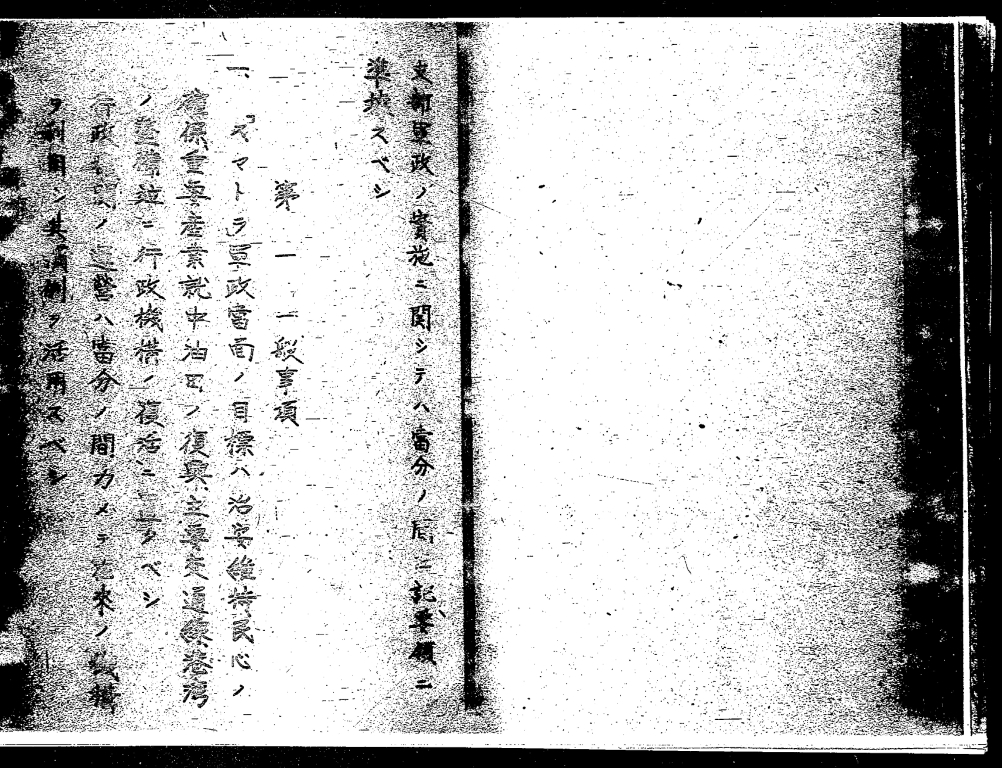 支部軍政ノ實施ニ関シテハ當分ノ間左記要領ニ
準拠スベシ
第一 一般事項
一、「スマトラ軍政當面ノ目標ハ治安維持民心ノ
確保重要産業就中油田ノ復興主要交通線港湾
ノ整備竝ニ行政機構ノ復活ニ在ルベシ
行政ノ運營ハ當分ノ間力メテ在來ノ機構
ヲ利用シ其ノ ヲ活用スベシ